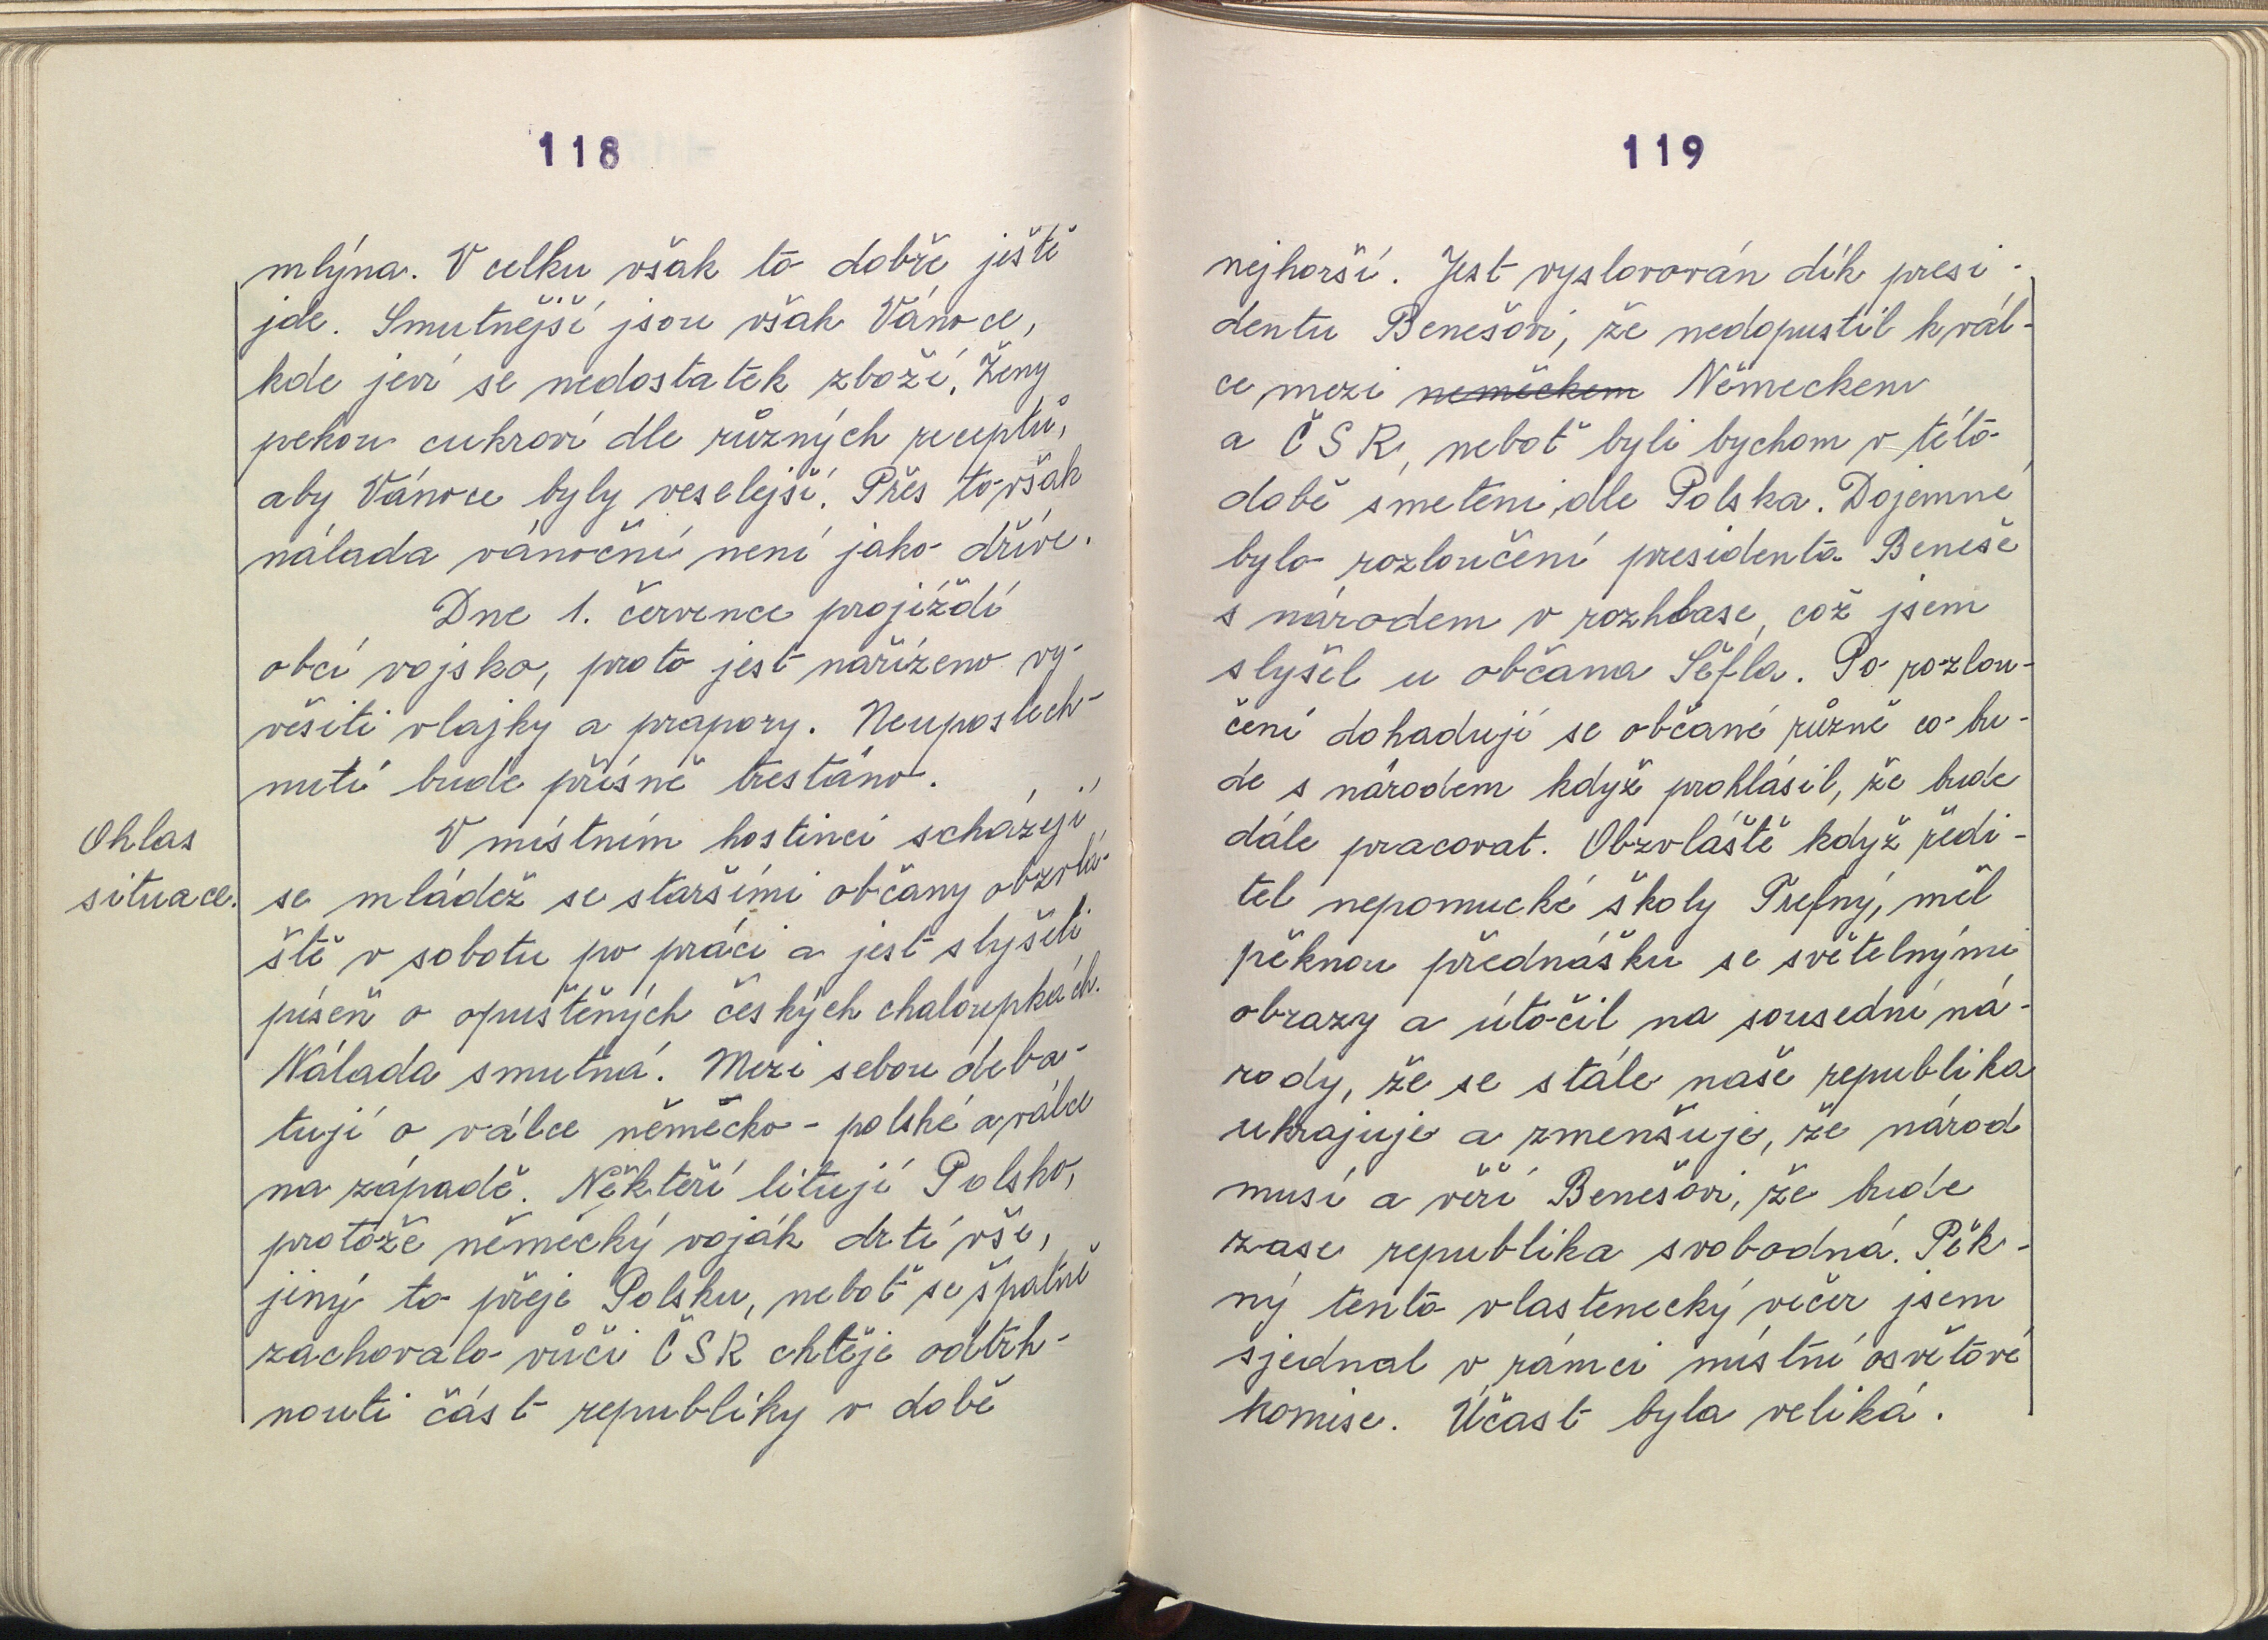 118
mlýna. V celku však to dobře ještě
jde. Smutnější jsou však Vánoce,
kde jeví se nedostatek zboží. Ženy
pekou cukroví dle různých receptů,
aby Vánoce byly veselejší. Přes to však
nálada vánoční není jako dříve.
Dne 1. července projíždí
obcí vojsko, proto jest nařízeno vy-
věsiti vlajky a prapory. Neuposlech-
nutí bude přísně trestáno.
Ohlas
situace.
V místním hostinci scházejí
se mládež se staršími občany obzvlá-
ště v sobotu po práci a jest slyšeti
píseň o opuštěných českých chaloupkách.
Nálada smutná. Mezi sebou deba-
tují o válce německo - polské a válce
na západě. Někteří litují Polsko,
protože německý voják drtí vše,
jiný to přeje Polsku, neboť se špatně
zachovalo vůči ČSR chtěje odtrh-
nouti část republiky v době
119
nejhorší. Jest vyslovován dík presi-
dentu Benešovi, že nedopustil k vál-
ce mezi německem Německem
a ČSR, neboť byli bychom v této
době smeteni dle Polska. Dojemné
bylo rozloučení presidenta Beneše
s národem v rozhlase, což jsem
slyšel u občana Šéfla. Po rozlou-
čení dohadují se občané různě co bu-
de s národem když prohlásil, že bude
dále pracovat. Obzvláště když ředi-
tel nepomucké školy Trefný, měl
pěknou přednášku se světelnými
obrazy a útočil na sousední ná-
rody, že se stále naše republika
ukrajuje a zmenšuje, že národ
musí a věří Benešovi, že bude
zase republika svobodná. Pěk-
ný tento vlastenecký večer jsem
sjednal v rámci místní osvětové
komise. Účast byla veliká.